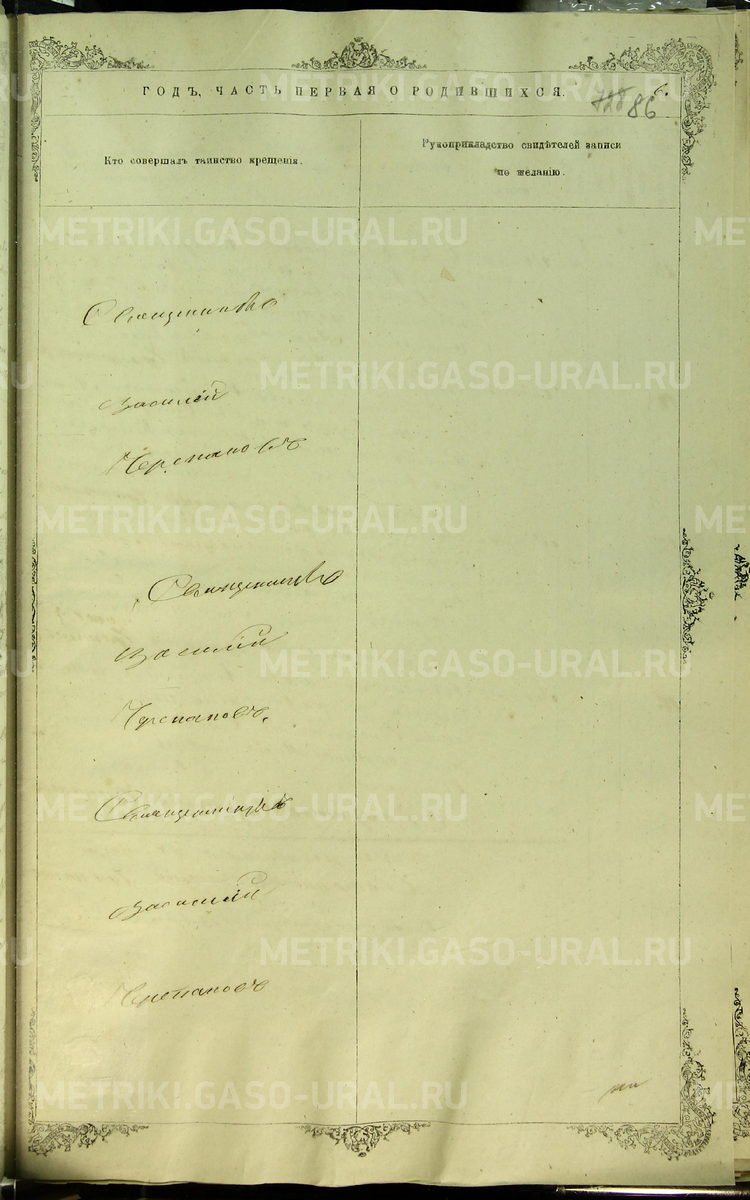 ГОДЪ, ЧАСТЬ ПЕРВАЯ О РОДИВШИХСЯ.
6.
86
Кто совершалъ таинство крещенія.
Рукоприкладство свидѣтелей записи
по желанію.
Священникъ
Василій
Черепановъ
Священникъ
Василій
Черепановъ.
Священникъ
Василій
Черепановъ
METRIKI.GASO-URAL.RU